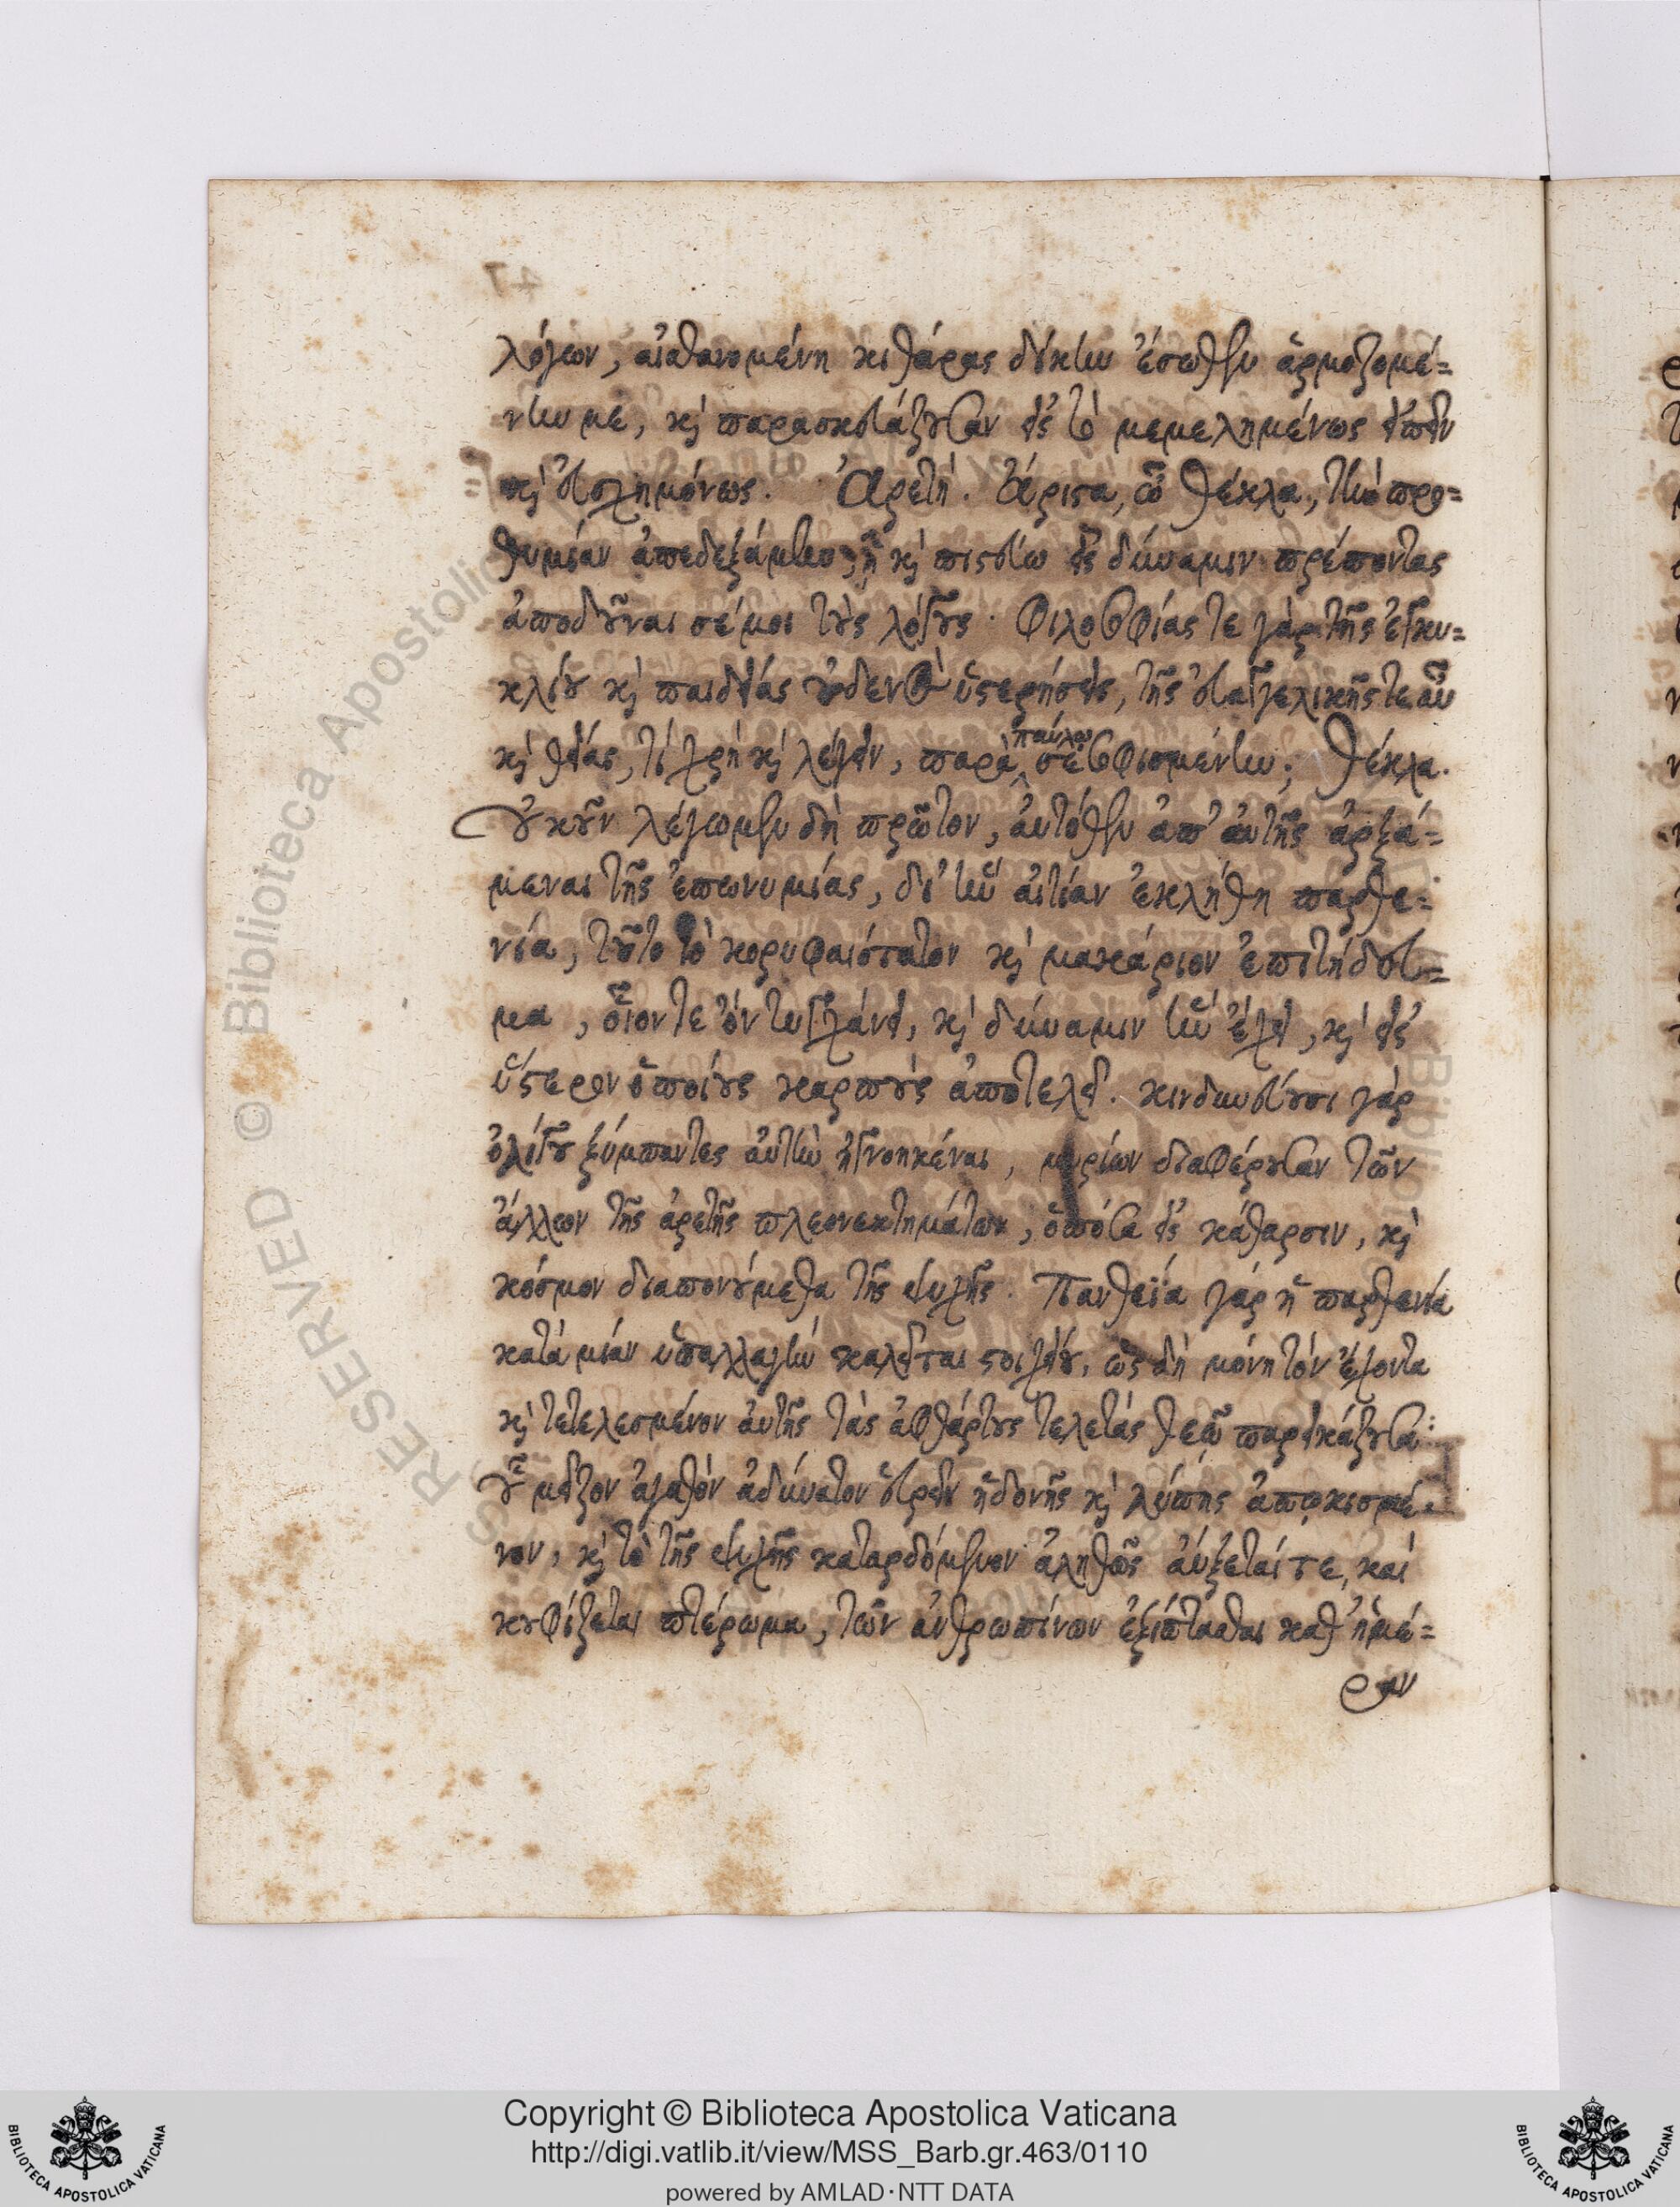 λόγων, αἰσθανομένη κιθάρας δίκην ἔσωθεν ἁρμοζομέ=
νην με, καὶ παρασκευάζουσαν εἰς τὸ μεμελημένως εἰπεῖν
καὶ εὐσχημόνως. Ἀρετή. Ἄριστα, ὦ Θέκλα, τὴν προ=
θυμίαν ἀπεδεξάμην, ᾗ καὶ πιστεύω εἰς δύναμιν πρέποντας
ἀποδοῦναι σέ μοι τοὺς λόγους. Φιλοσοφίας τε γὰρ τῆς ἐγκυ=
κλίου καὶ παιδείας οὐδενὸς ὑστερήσεις, τῆς εὐαγγελικῆς τε αὖ
καὶ θείας, τί χρὴ καὶ λέγειν, παρὰ παύλω σεσοφισμένην; Θέκλα.
Οὐκοῦν λέγωμεν δὴ πρῶτον, αὐτόθεν ἀπ' αὐτῆς ἀρξά=
μεναι τῆς ἐπωνυμίας, δι' ἣν αἰτίαν ἐκλήθη παρθε=
νία, τοῦτο τὸ κορυφαιότατον καὶ μακάριον ἐπιτήδευ=
μα, οἷόν τε ὂν τυγχάνει, καὶ δύναμιν ἣν ἔχει, καὶ εἰς
ὕστερον ὁποίους καρποὺς ἀποτελεῖ. κινδυνεύουσι γὰρ
ὀλίγου ξύμπαντες αὐτὴν ἠγνοηκέναι, μυρίων διαφέρουσαν τῶν
ἄλλων τῆς ἀρετῆς πλεονεκτημάτων, ὁπόσα εἰς κάθαρσιν, καὶ
κόσμον διαπονούμεθα τῆς ψυχῆς. Πανθεΐα γὰρ ἡ παρθενία
κατὰ μίαν ὑπαλλαγὴν καλεῖται στοιχείου, ὡς δὴ μόνη τὸν ἔχοντα
καὶ τετελεσμένον αὐτῆς τὰς ἀφθάρτους τελετὰς θεῷ παρεικάζουσα:
οὗ μεῖζον ἀγαθὸν ἀδύνατον εὑρεῖν ἡδονῆς καὶ λύπης ἀπῳκισμέ=
νον, καὶ τὸ τῆς ψυχῆς καταρδόμενον ἀληθῶς αὔξεταί τε, καὶ
κουφίζεται πτέρωμα, τῶν ἀνθρωπίνων ἐξίπτασθαι καθ' ἡμέ=
ραν
Copyright © Biblioteca Apostolica Vaticana
http://digi.vatlib.it/view/MSS_Barb.gr.463/0110
powered by AMLAD·NTT DATA